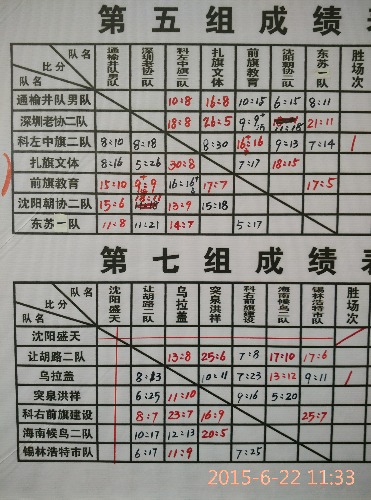 第五组成绩表
队名 通榆井队男队 深圳老协二队 科左中旗二队 扎旗文体 前旗教育 沈阳朝协二队 东苏一队 胜场次
比分
队名
通榆井队男队 10:8 16:8 10:15 6:15 8:11
深圳老协二队 18:8 26:5 9:9 21:11
科左中旗二队 8:10 8:18 8:30 16:16 9:13 7:14 1
扎旗文体 8:16 5:26 30:8 7:17 18:15
前旗教育 15:10 9:9 16:16 17:7 17:5
沈阳朝协二队 15:6 13:9 15:18
东苏一队 11:8 11:21 14:7 5:17
第七组成绩表
队名 沈阳盛天 让胡路二队 乌拉盖 突泉洪祥 科右前旗建设 海南候鸟二队 锡林浩特市队 胜场次
比分
队名
沈阳盛天
让胡路二队 13:8 25:6 7:8 17:10 17:6
乌拉盖 8:13 10:11 7:23 13:12 9:11 1
突泉洪祥 6:25 11:10 9:16 5:20
科右前旗建设 8:7 23:7 16:9 25:7
海南候鸟二队 10:17 12:13 20:5
锡林浩特市队 6:17 11:9 7:25
2015-6-22 11:33